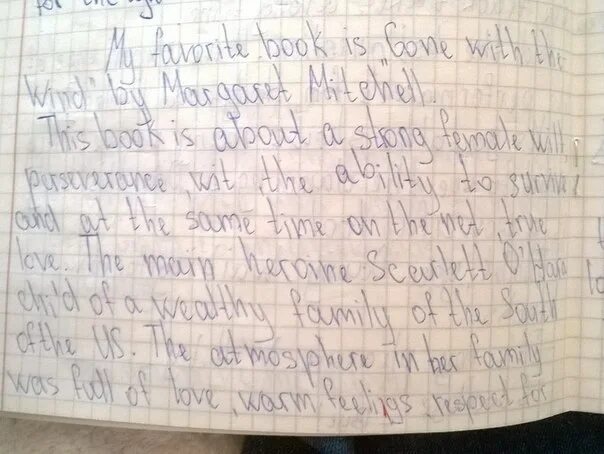 for the
My favorite book is "Gone with the
Wind" by Margaret Mitchell.
This book is about a strong female will,
perseverance, wit, the ability to survive
and at the same time on the net, true
love. The main heroine Scearlett O'Hara
child of a wealthy family of the South
of the US. The atmosphere in her family
was full of love, warm feelings, respect for